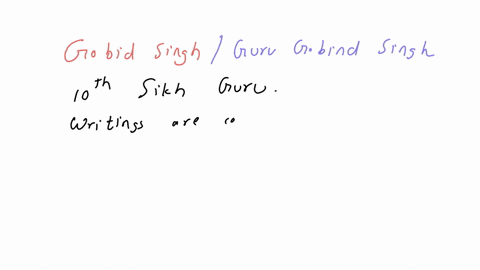 Gobid Singh / Guru Gobind Singh
10th Sikh Guru.
Writings are co